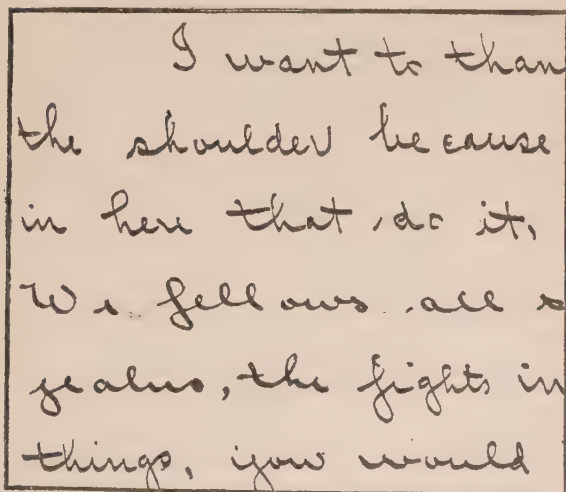 I want to than
the shoulder because
in here that do it,
We fellows all s
jealus, the fights in
things, you would